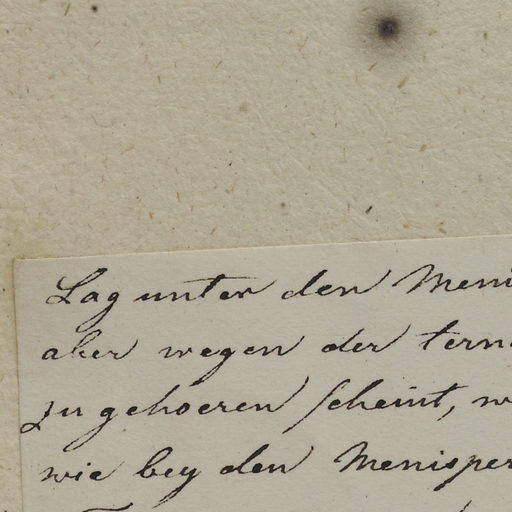 Lag unter den Meni
aber wegen der tern
zu gehoeren scheint, w
wie bey den Menisper